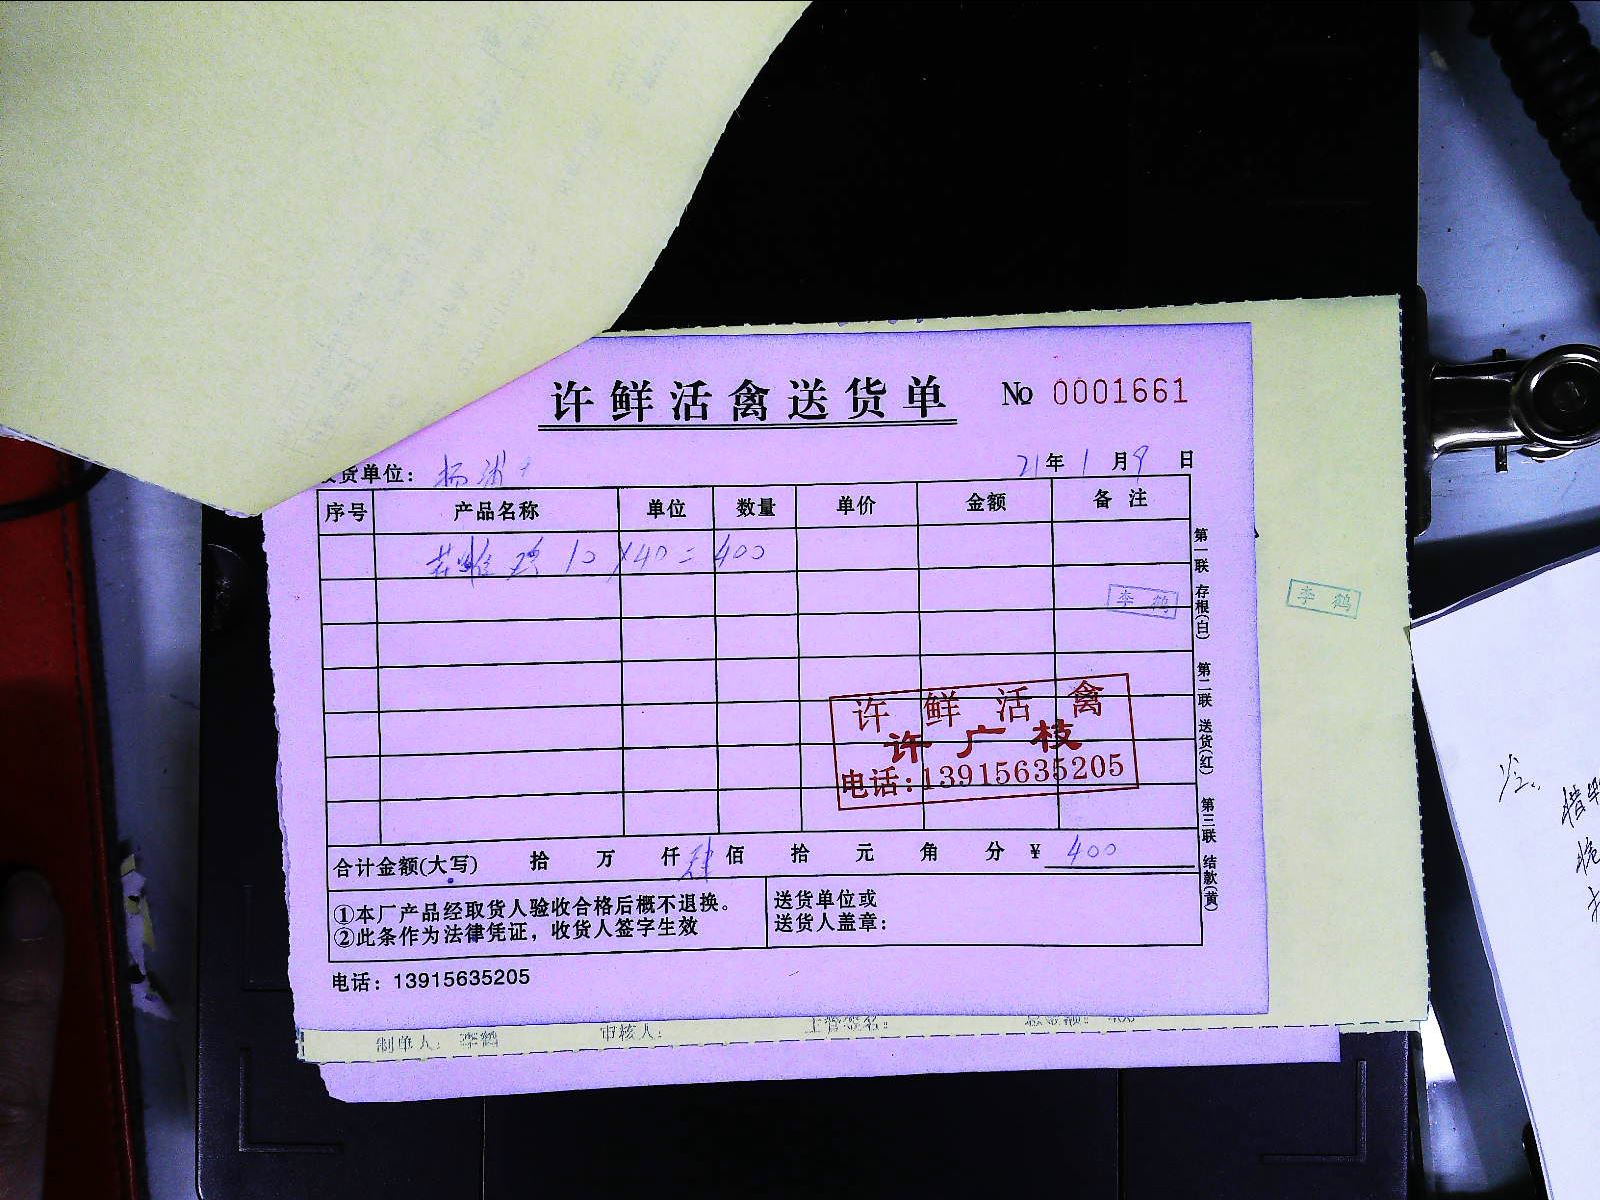 许鲜活禽送货单 № 0001661
货单位: 21年1月9日
序号 产品名称 单位 数量 单价 金额 备注
10 ×40=400
李鹤 李鹤
许鲜活禽
许广枝
电话:13915635205
合计金额(大写) 拾 万 仟肆佰 拾 元 角 分 ¥ 400
①本厂产品经取货人验收合格后概不退换。
②此条作为法律凭证，收货人签字生效
送货单位或
送货人盖章:
电话: 13915635205
第一联 存根(白) 第二联 送货(红) 第三联 结款(黄)
制单人: 李鹤 审核人: 主管签名: 总金额: 400